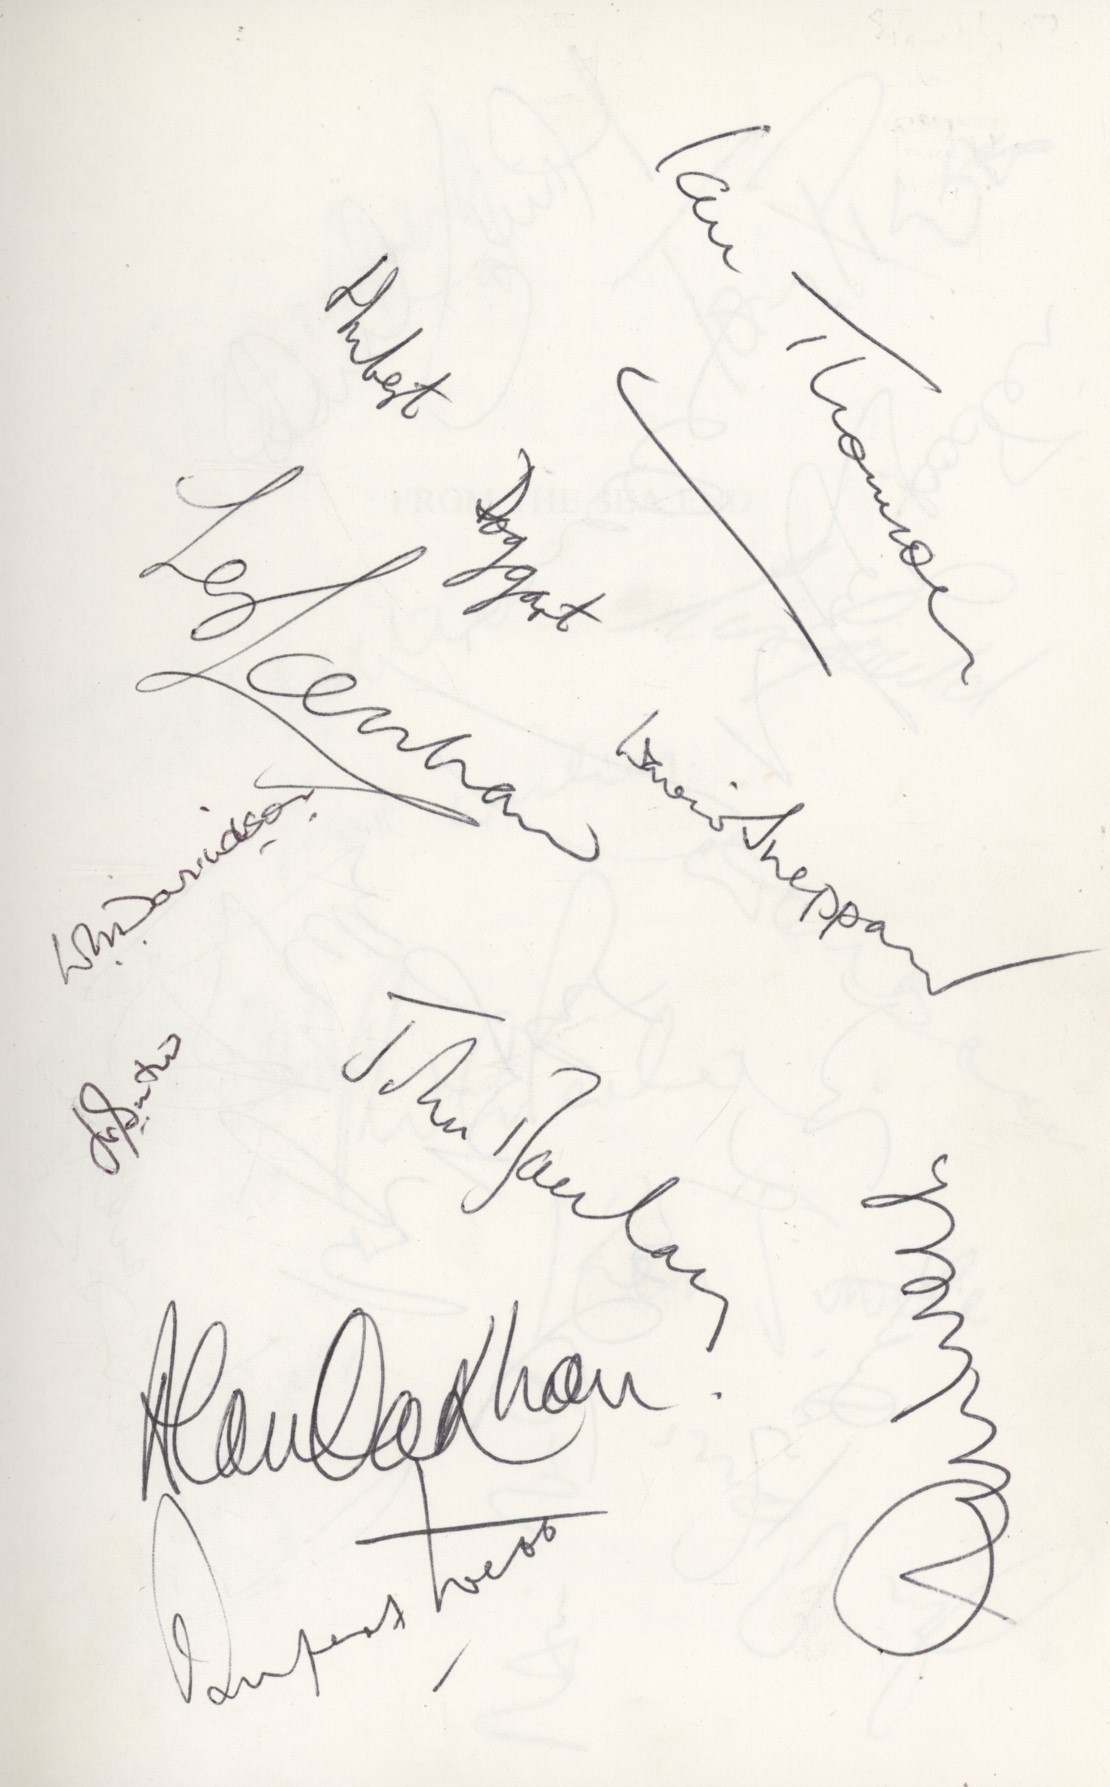 Ian Thomson
Hubert
Doggart
FROM THE SEA END
Les Lenham
David Sheppard
W.W. Davidson
John Barclay
Alan Oakman
Rupert Webb